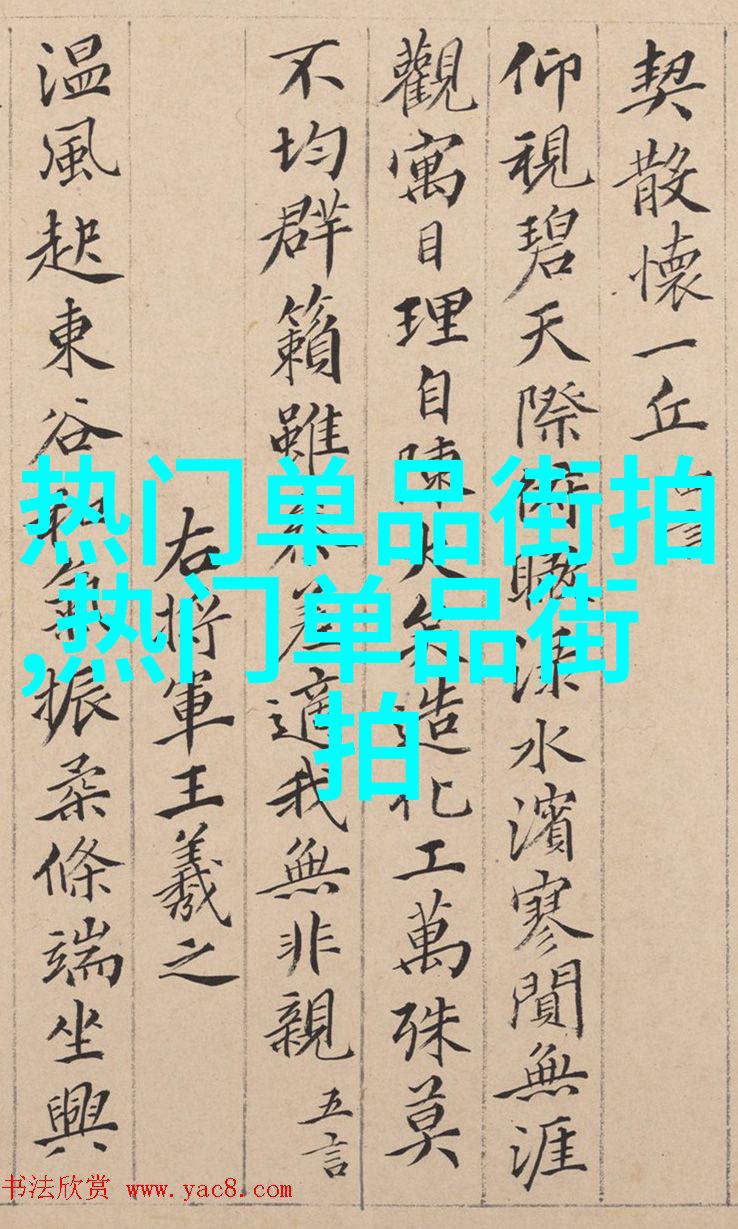 契散懷一丘
仰視碧天際俯瞰淥水濱寥閴無涯
觀寓目理自陳大矣造化工萬殊莫
不均群籟雖參差適我無非親 五言
右將軍王羲之
温風起東谷和氣振柔條端坐興
热门单品街拍
,热门单品街
拍
书法欣赏 www.yac8.com